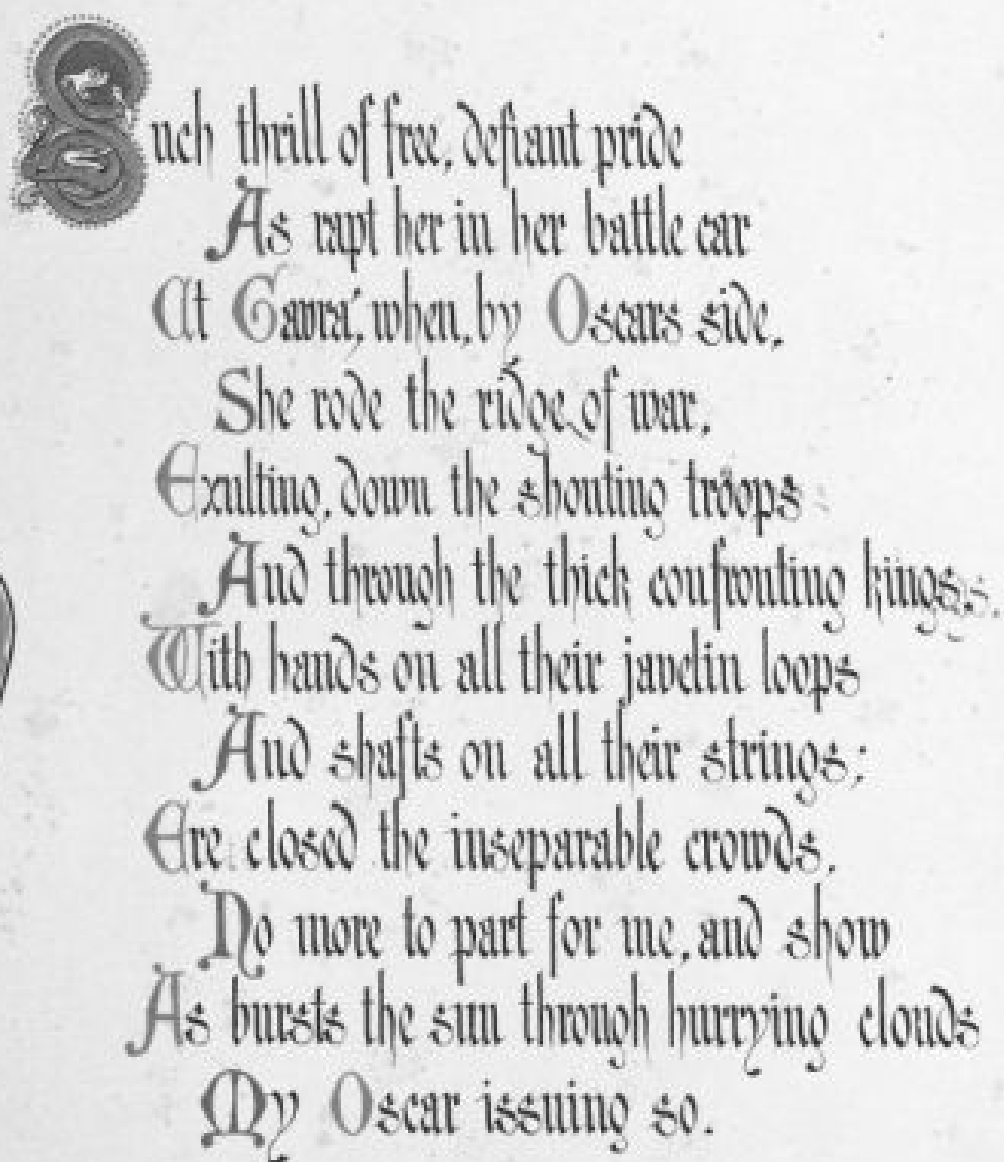 Such thrill of free, defiant pride
As rapt her in her battle car
At Gavra, when, by Oscars side,
She rode the ridge of war,
Exulting, down the shouting troops
And through the thick confronting kings,
With hands on all their javelin loops
And shafts on all their strings;
Ere closed the inseparable crowds,
No more to part for me, and show
As bursts the sun through hurrying clouds
My Oscar issuing so.